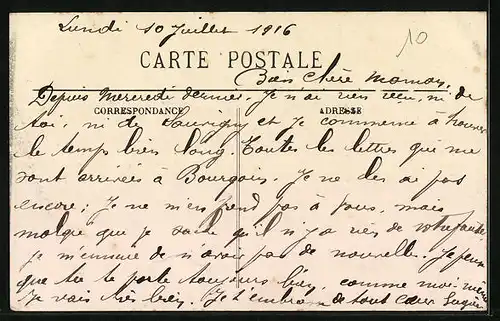 Lundi 10 Juillet 1916
10
CARTE POSTALE
Bien Chère Maman,
Depuis Mercredi dernier, Je n'ai rien reçu, ni de
CORRESPONDANCE
ADRESSE
toi, ni de Souvigny et Je commence à trouver
le temps bien long. Toutes les lettres qui me
sont arrivées à Bourgoin. Je ne les ai pas
encore; Je ne m'en prend pas à vous, mais
malgré que Je sache qu'il n'y a rien de votre faute
je m'ennuie de n'avoir pas de nouvelle. Je pense
que tu te porte toujours bien, comme moi-même
Je vais très bien. Je t'embrasse de tout cœur